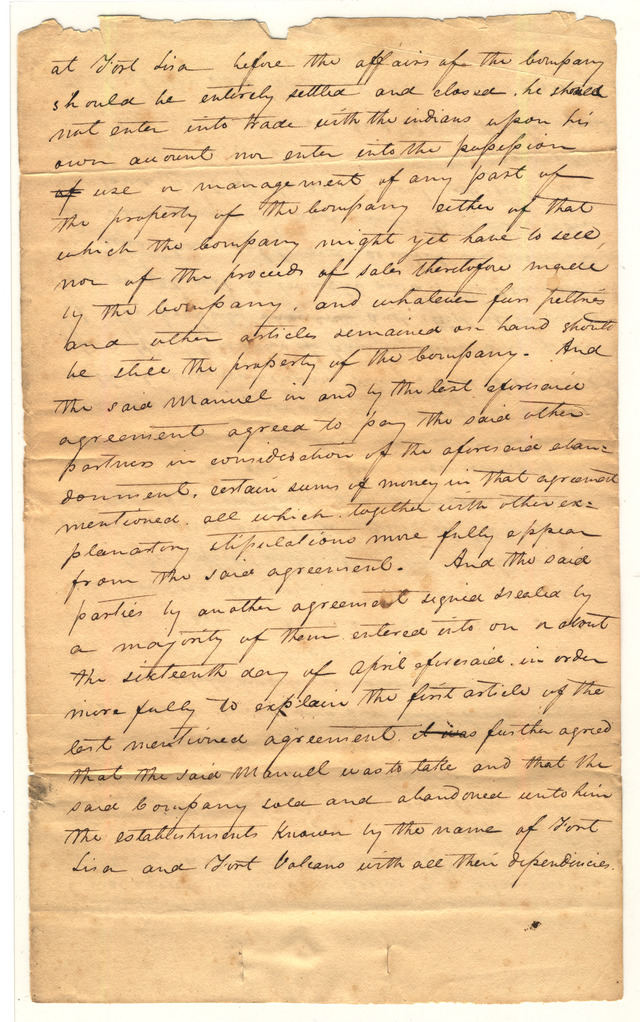 at Fort Lisa before the affairs of the Company
should be entirely settled and closed. he should
not enter into trade with the indians upon his
own account nor enter into the possession
of use or management of any part of
the property of the Company either of that
which the Company might yet have to sell
nor of the proceeds of sales therefore made
by the Company. and whatever furs peltries
and other articles remained on hand should
be still the property of the Company. And
the said Manuel in and by the last aforesaid
agreement agreed to pay the said other
partners in consideration of the aforesaid aban=
donment. certain sums of money in that agreement
mentioned. all which together with other ex=
planatory stipulations more fully appear
from the said agreement. And the said
parties by another agreement signed sealed by
a majority of them entered into on or about
the sixteenth day of April aforesaid. in order
more fully to explain the first article of the
last mentioned agreement. it was further agreed
that the said Manuel was to take and that the
said Company sold and abandoned unto him
the establishments known by the name of Fort
Lisa and Fort Volcano with all their dependincies.